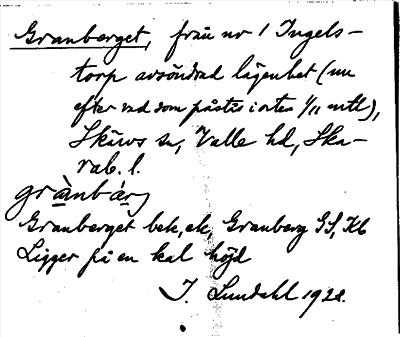 Granberget, från nr 1 Ingels-
torp avsöndrad lägenhet (nu
efter vad som påstås i orten 1/11 mtl),
Skärvs sn, Valle hd, Ska-
rab. l.
grànbár
Granberget bek, ek, Granberg GS, Kb
Ligger på en kal höjd
I. Lundahl 1928.